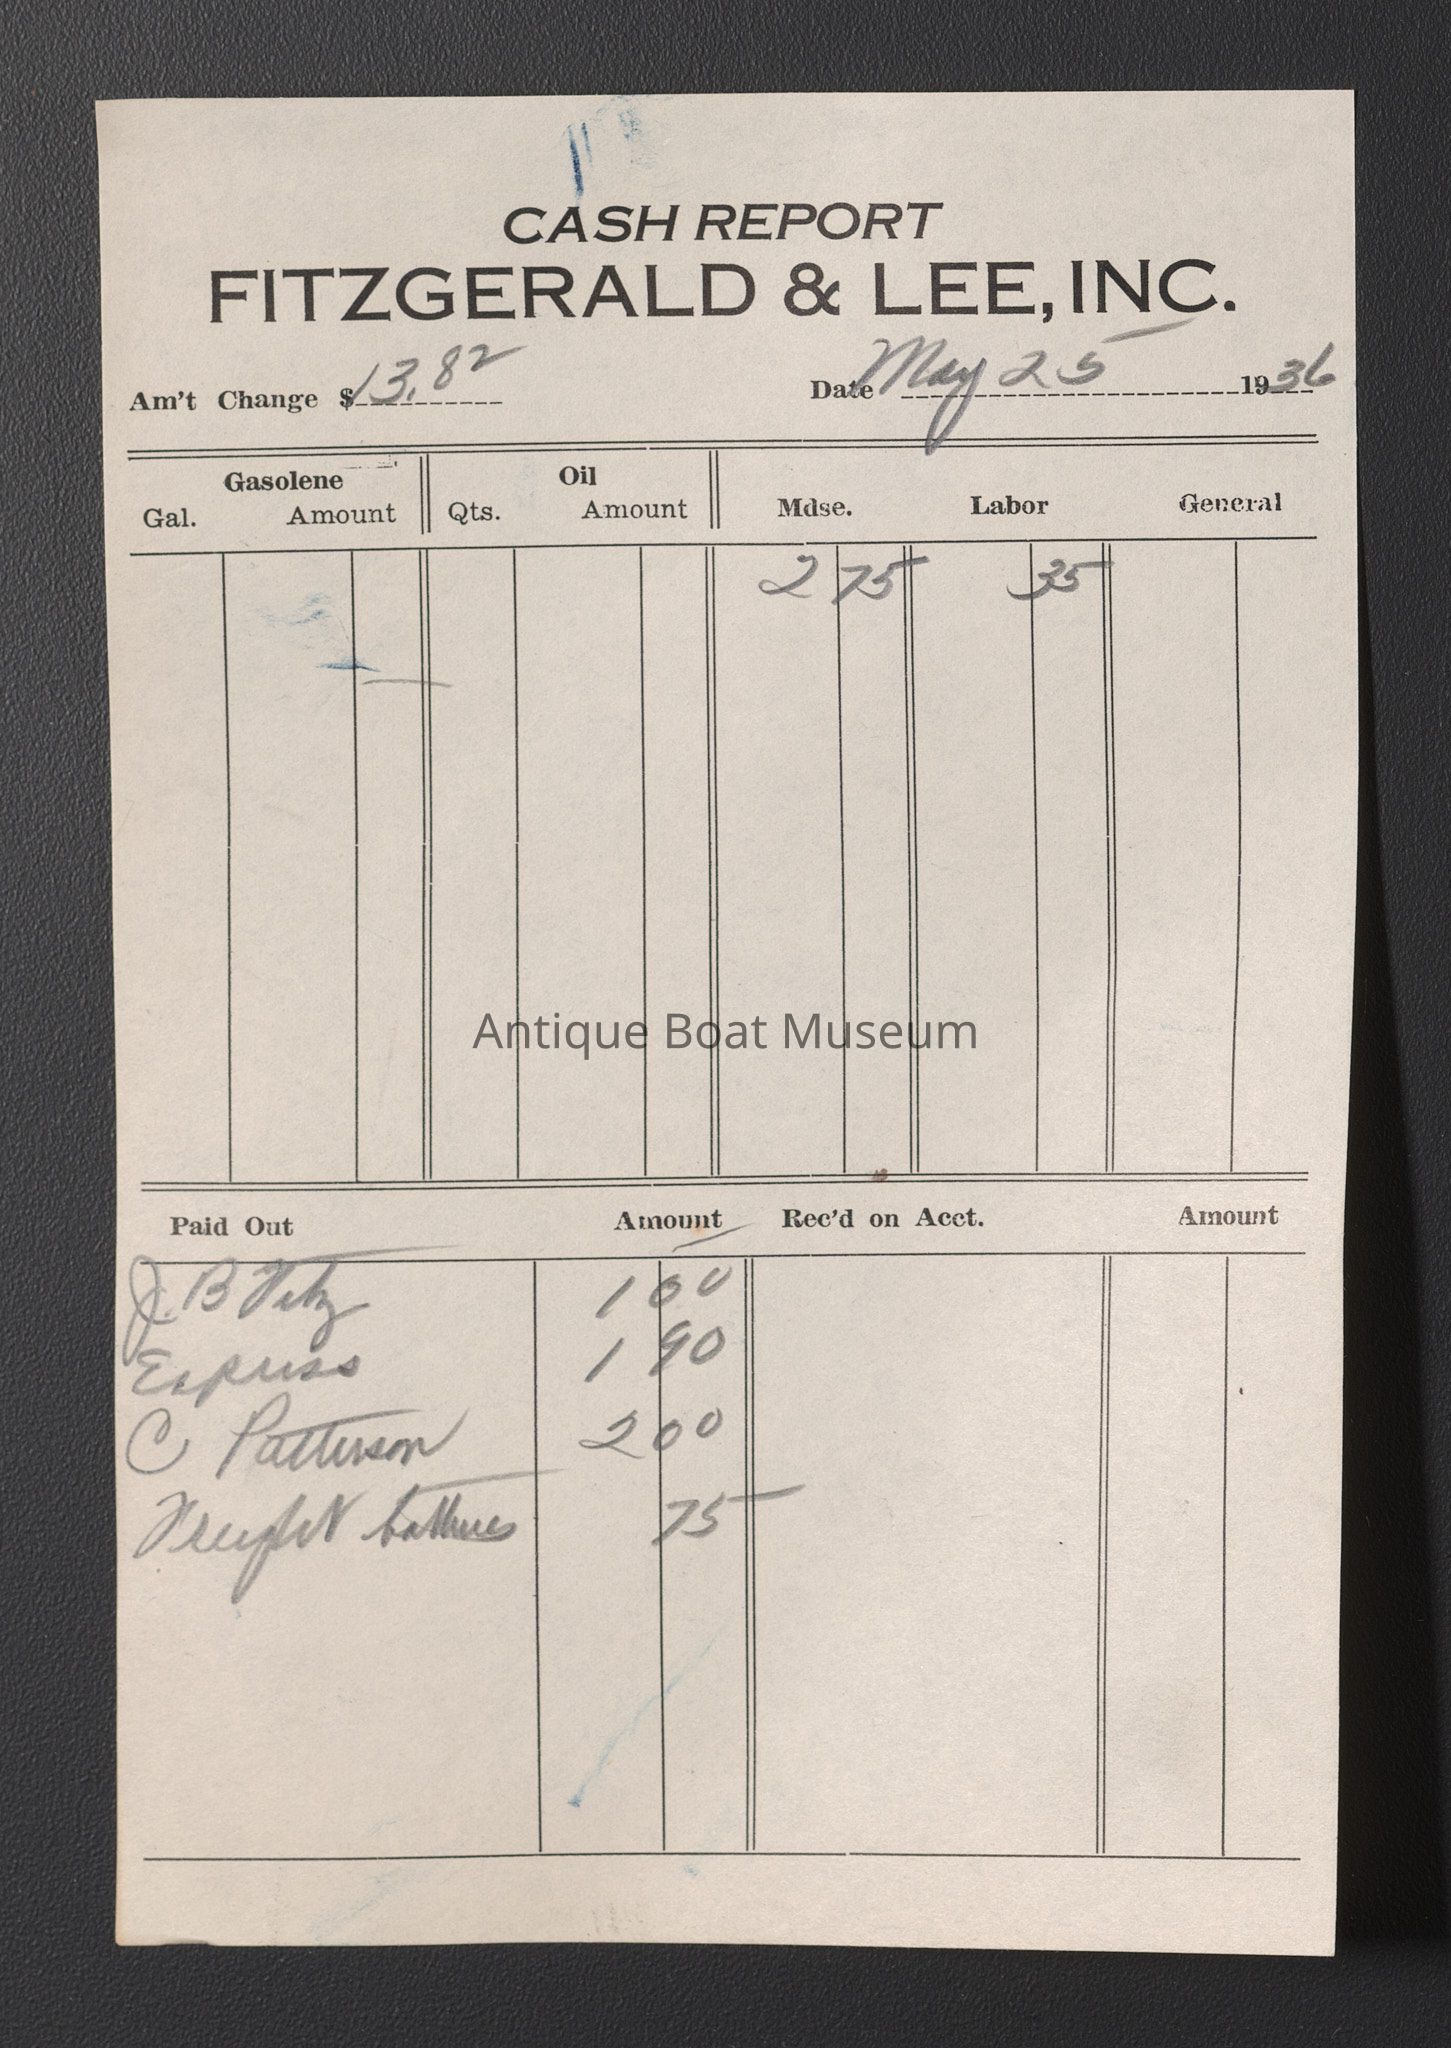 CASH REPORT
FITZGERALD & LEE, INC.
Am't Change $13.82 Date May 25 1936
Gasolene Oil
Gal. Amount Qts. Amount Mdse. Labor General
2 75 35
Antique Boat Museum
Paid Out Amount Rec'd on Acct. Amount
J. B Fitz 1 00
Express 1 90
C Patterson 2 00
Freight batteries 75